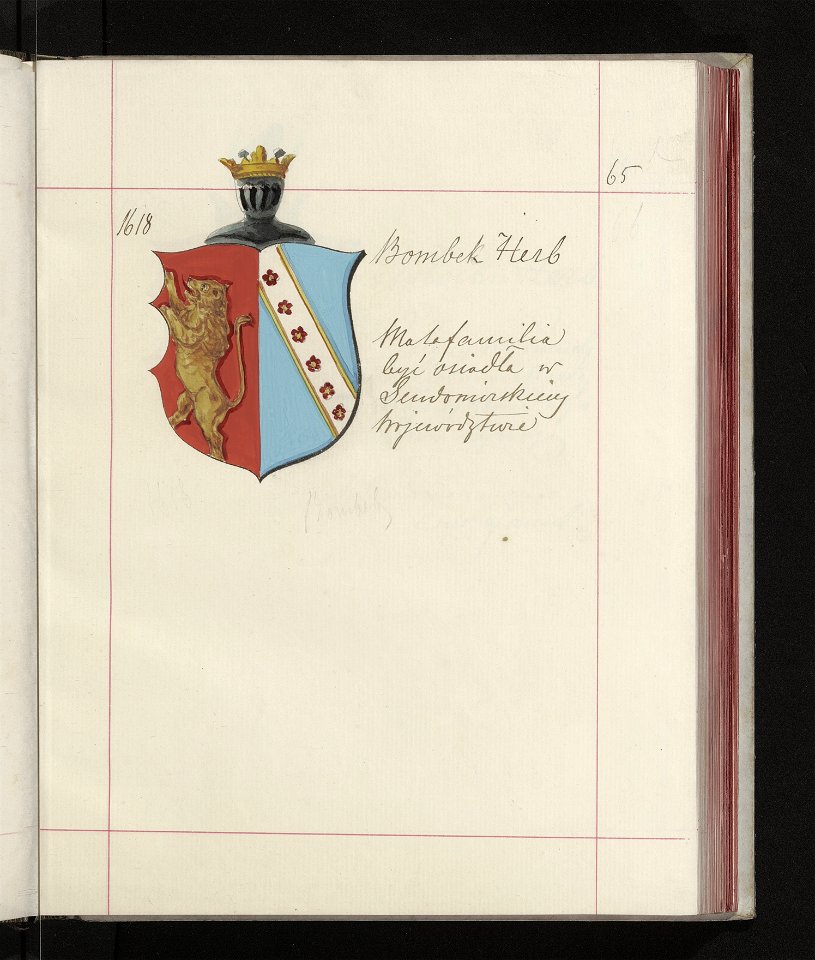 65
1618
Bombek Herb
Matafamilia
być osiadła w
Sendomirskieiy
Województwie